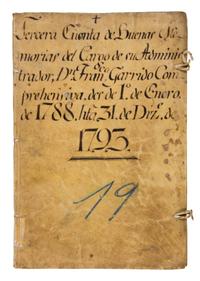 +
Tercera Cuenta de Buenas Me-
morias del Cargo de su Adminis-
trador, Dn. Franco. Garrido Com-
prehensiva, de 1º. de Enero,
de 1788, hta 31, de Dizre. de
1793.
19